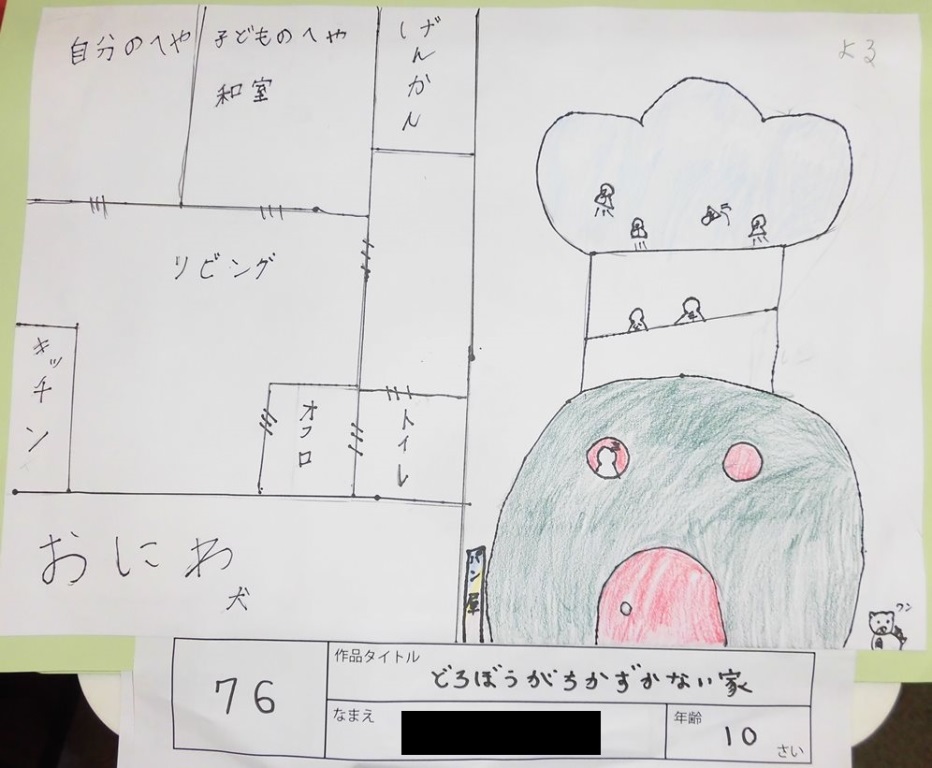 自分のへや
子どものへや
和室
げんかん
よる
リビング
キッチン
オフロ
トイレ
おにわ
犬
パン屋
ワン
76
作品タイトル
どろぼうがちかずかない家
なまえ
年齢
10
さい